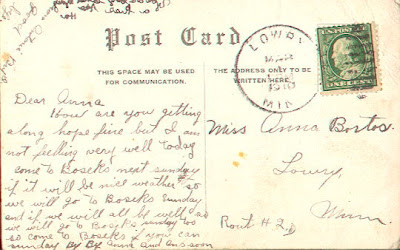 Post Card
THIS SPACE MAY BE USED
FOR COMMUNICATION.
THE ADDRESS ONLY TO BE
WRITTEN
LOWRY
MAR
MIN
ONE CENT
Dear Anna
How are you getting
along hope fine but I am
not feeling very well today
come to Boseks next sunday
if it will be nice weather so
we will go to Boseks Sunday
and if we will all be well so
we will go to Boseks sunday too
so come to Boseks if you can
sunday By By Anna and ans soon
Miss Anna Bortos.
Lowry,
Rout # 2.
Minn.